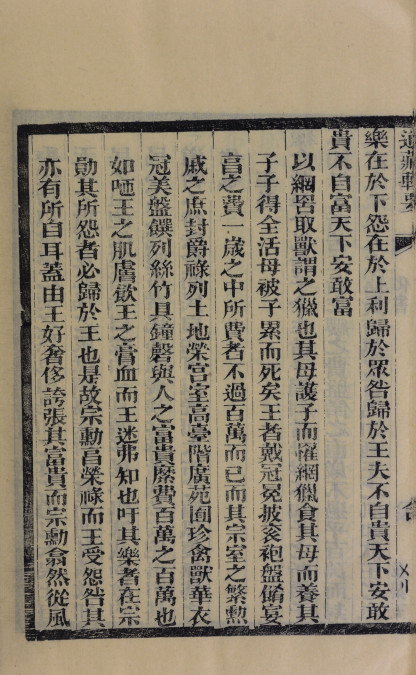 道藏輯要
樂在於下怨在於上利歸於眾咎歸於王夫不自貴天下安敢
貴不自富天下安敢富
以網罟取獸謂之獵也其母護子而罹網獵食其母而養其
子子得全活母被子累而死矣王者戴冠冕披袞袍盤餚宴
言之費一歲之中所費者不過百萬而已而其宗室之繁勲
戚之庶封爵祿列土地榮宫室高臺階廣苑囿珍禽獸華衣
冠美盤饌列絲竹具鐘磬與人之富貴縻費百萬之百萬也
如咂王之肌膚飲王之膏血而王迷弗知也吁其樂者在宗
勛其所怨者必歸於王也是故宗勳昌榮祿而王受怨咎其
亦有所自耳蓋由王好奢侈誇張其富貴而宗勳翕然從風